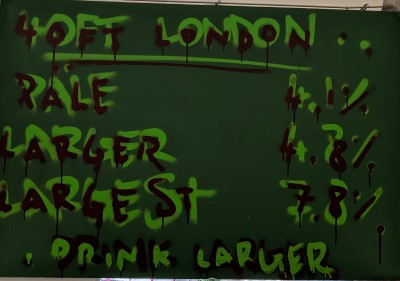 40FT LONDON
PALE 4.1%
LARGER 4.8%
LARGEST 7.8%
. DRINK LARGER